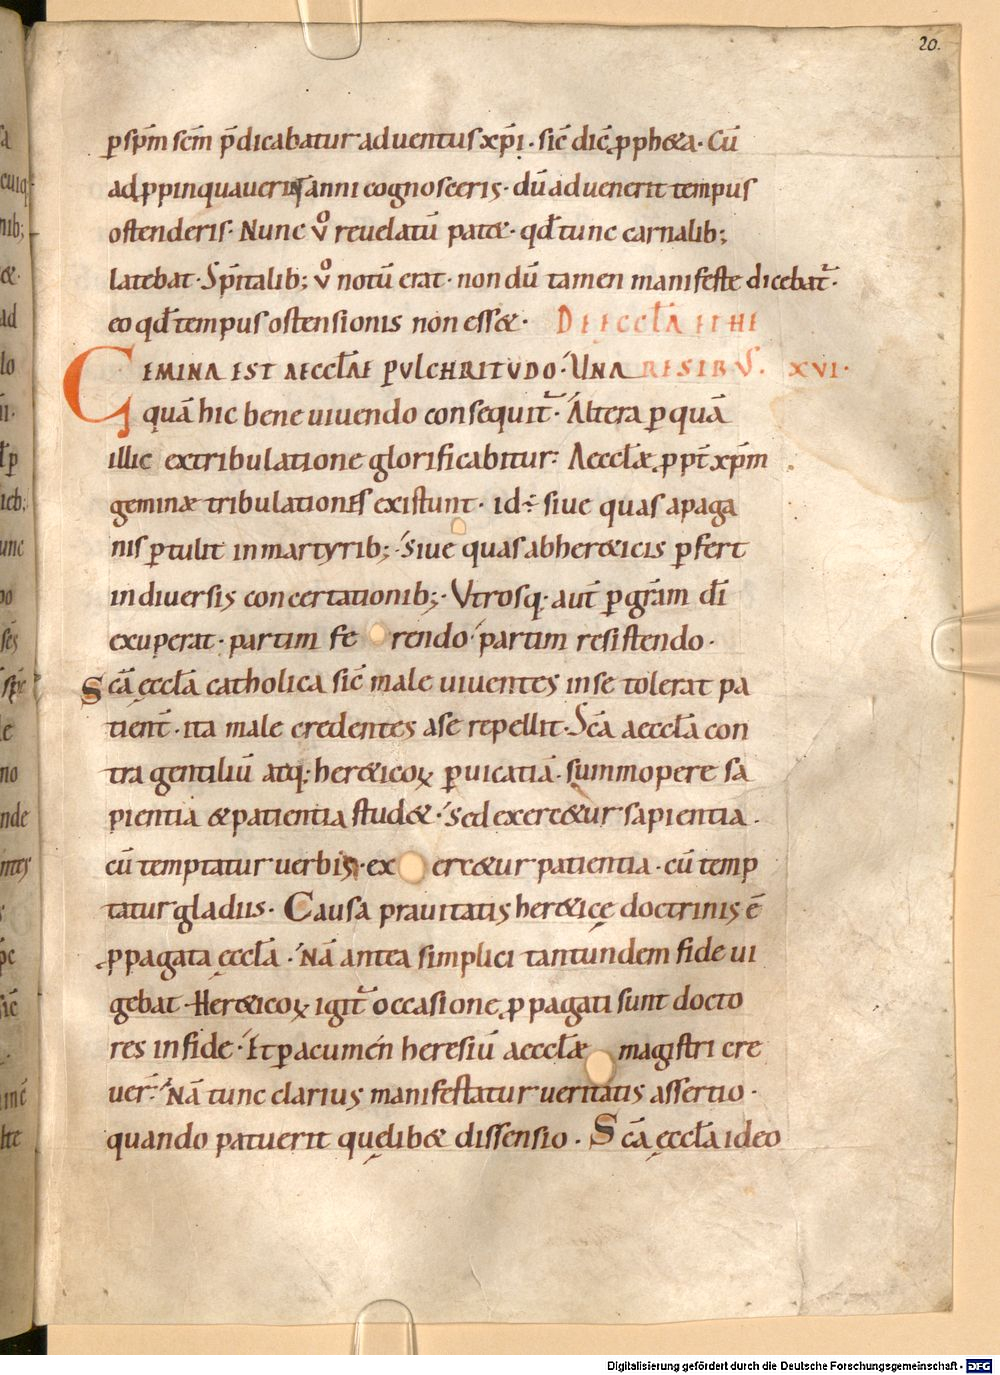 20.
p̲ sp̄m sc̄m p̄dicabatur aduentus xp̄i · sic̄ dic̄ ꝓph&a · Cū
adꝓpinquauerint anni cognosceris · dū aduenerit tempus
ostenderis · Nunc v̊ reuelatū pat& · qđ tunc carnalib;
latebat · Sp̄italib; v̊ notū erat · non dū tamen manifeste dicebat̄ ·
eo qđ tempus ostensionis non ess& · DE ECCLA ET HE
GEMINA EST AECCLAE PULCHRITUDO · UNA RESIBUS. XVI ·
quā hic bene uiuendo consequit̄ · Altera ꝑ quā
illic ex tribulatione glorificabitur · Aeccl̄æ ꝓpt̄ xp̄m
geminæ tribulationes existunt · id÷ siue quas a paga
nis ꝑtulit in martyrib; · siue quas ab her&icis ꝑfert
in diuersis concertationib; · Vtrosq; aut̄ ꝑ gr̄am dī
exuperat · partim fe rendo · partim resistendo ·
Sc̄a ęccl̄a catholica sic̄ male uiuentes in se tolerat pa
tient̄ · ita male credentes a se repellit · Sc̄a aeccl̄a con
tra gentiliū atq; her&icoꝝ ꝑuicatiā · summopere sa
pientia & patientia stud& · Sed exerc&ur sapientia ·
cū temptatur uerbis · ex erc&ur patientia · cū temp
tatur gladiis · Causa prauitatis her&icę doctrinis ē
ꝓpagata ęccl̄a · Nā antea simplici tantundem fide ui
gebat · Her&icoꝝ igit̄ occasione ꝓpagati sunt docto
res in fide · Et ꝑ acumen heresiū aeccl̄æ magistri cre
uer̄ · Nā tunc clarius manifestatur ueritatis assertio ·
quando patuerit quęlib& dissensio · Sc̄a ęccl̄a ideo
Digitalisierung gefördert durch die Deutsche Forschungsgemeinschaft - DFG